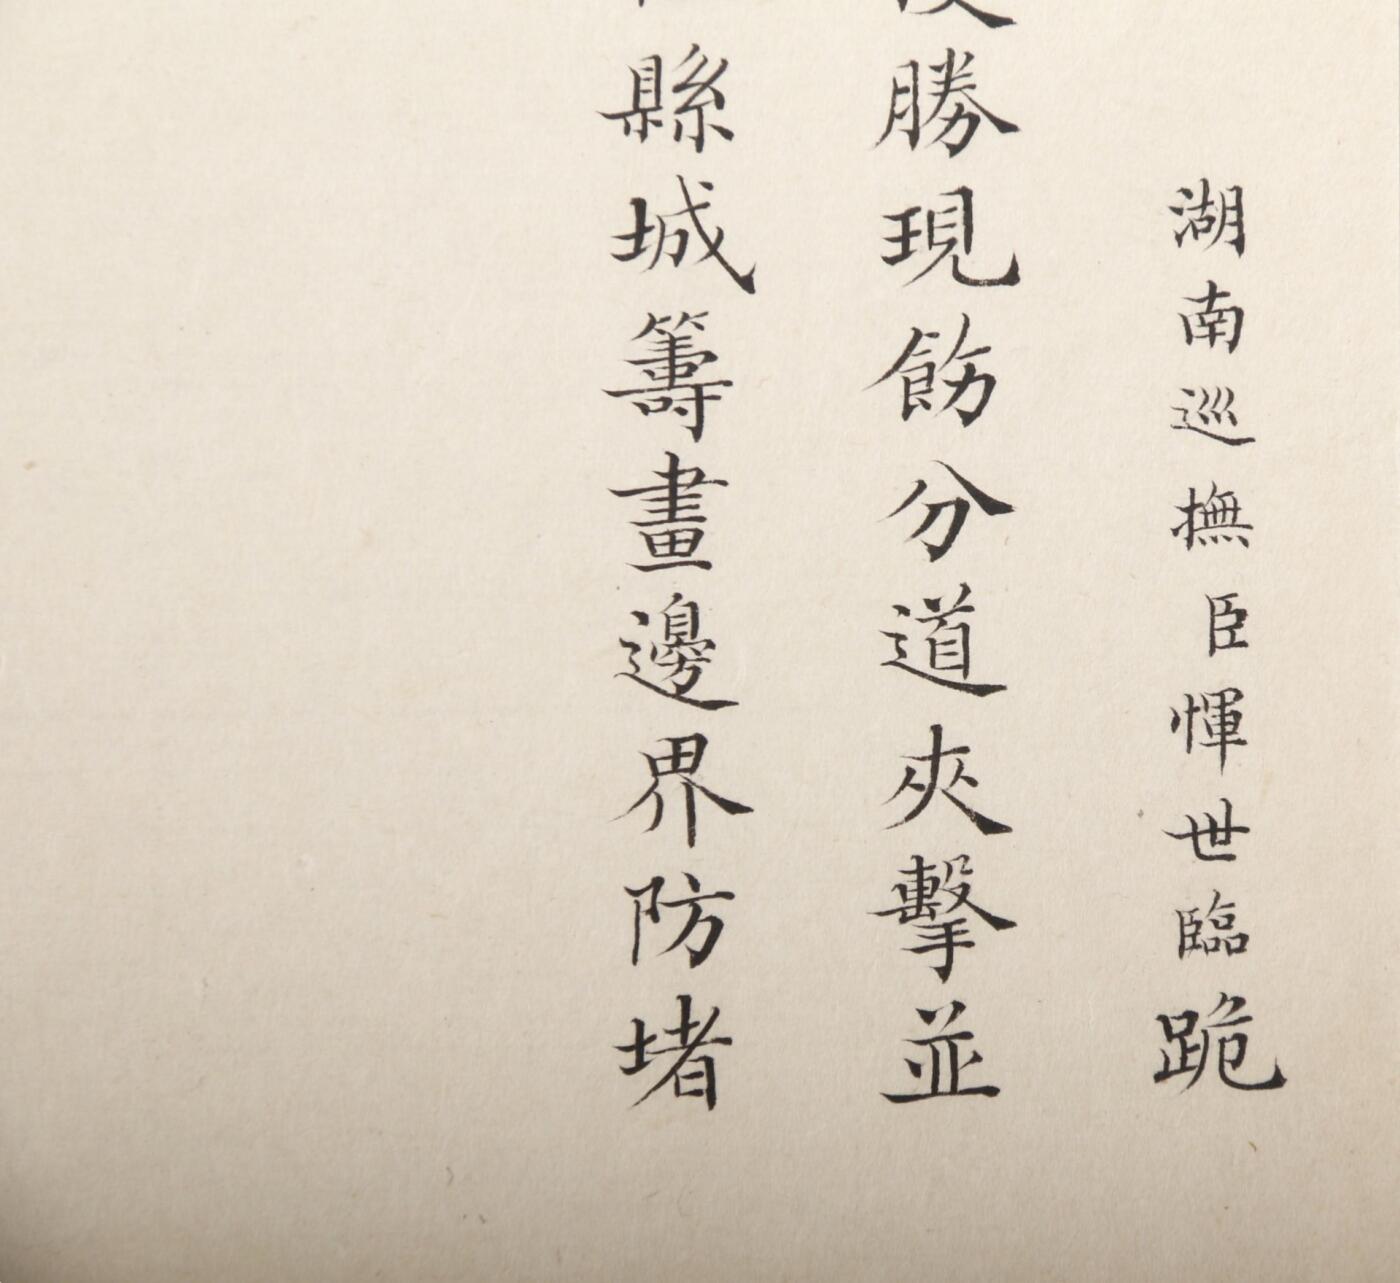 湖南巡撫臣惲世臨跪
勝現飭分道夾擊並
縣城籌畫邊界防堵